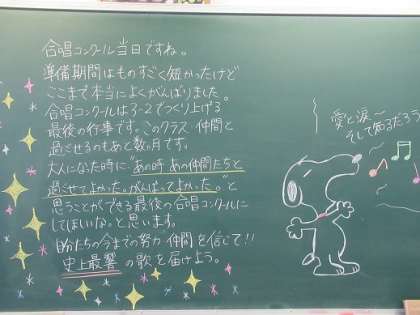 合唱コンクール当日ですね。
準備期間はものすごく短かったけど
ここまで本当によくがんばりました。
合唱コンクールは3-2でつくり上げる
最後の行事です。このクラス・仲間と
過ごせるのもあと数ヶ月です。
大人になった時に“あの時 あの仲間たちと
過ごせてよかった。がんばってよかった。”と
思うことができる最後の合唱コンクールに
してほしいなっと思います。
自分たちの今までの努力・仲間を信じて!!
中上最響 の歌を届けよう。
愛と涙〜
そして知るだろう